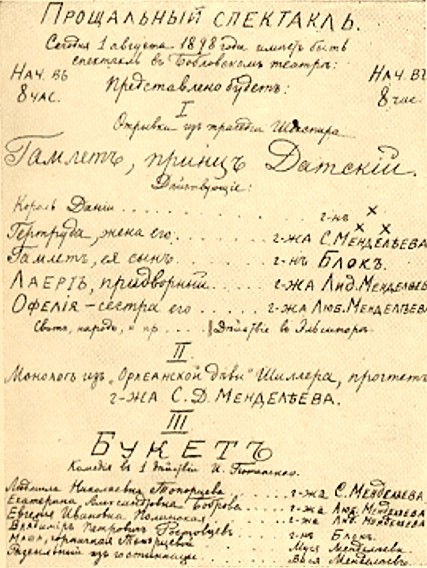 Прощальный спектакль.
Сегодня 1 августа 1898 года имѣетъ быть
спектакль в Бобловском театрѣ:
Нач. въ
8 час.
Нач. въ
8 час.
Представлено будетъ:
I
Отрывки из трагедіи Шекспира
Гамлетъ, принцъ Датскій.
Дѣйствующіе:
Король Даніи . . . . . . . . . г-нъ X
Гертруда, жена его . . . . . г-жа С. Менделѣева.
Гамлетъ, ея сынъ . . . . . г-нъ Блокъ.
Лаертъ, придворный . . . . г-жа Лид. Менделѣев
Офелія – сестра его . . . . г-жа Люб. Менделѣева
Свита, народъ, и пр. . . . . Дѣйствіе в Эльсиноре.
II
Монологъ изъ „Орлеанской дѣвы" Шиллера, прочтетъ
г-жа С. Д. Менделѣева.
III
Букетъ
Комедія в 1 дѣйствіи И. Потапенко.
Людмила Николаевна Топорцева . . . . г-жа С. Менделѣева.
Екатерина Александровна Боброва . . . г-жа Люб. Менделѣева
Евгенія Ивановна . . . г-жа Лид. Менделѣева
Владиміръ Петровичъ Ростовцев . . . г-нъ Блокъ.
горничная . . . Муся Менделѣева
из гостинницы . . . Менделѣевъ